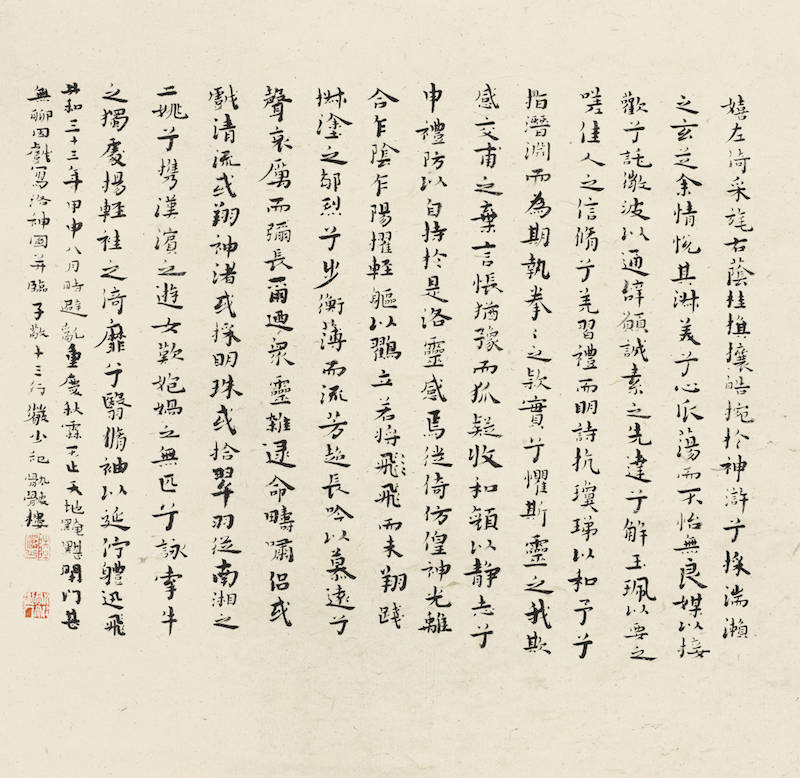 嬉左倚采旄右蔭桂旗攘皓捥於神滸兮採湍瀨
之玄芝余情悅其淋美兮心振蕩而不怡無良媒以接
歡兮託微波以通辭願誠素之先達兮解玉珮以要之
嗟佳人之信脩兮羌習禮而明詩抗瓊珶以和予兮
指潛淵而為期執拳〻之款實兮懼斯靈之我欺
感交甫之棄言悵猶豫而狐疑收和顏以靜志兮
申禮防以自持於是洛靈感焉徙倚仿偟神光離
合乍陰乍陽擢輕軀以鶴立若將飛飛而未翔踐
椒塗之郁烈兮步衡薄而流芳超長吟以慕遠兮
聲哀厲而彌長爾迺衆靈雜遝命疇嘯侶或
戲清流或翔神渚或採明珠或拾翠羽從南湘之
二姚兮攜漢濱之遊女歎匏媧之無匹兮詠牽牛
之獨處揚輕袿之猗靡兮翳脩袖以延佇體迅飛
共和三十三年甲申八月時避亂重慶秋霖不止天地黯黮閉門甚
無聊因戲寫洛神圖并臨子敬十三行記骩骳樓